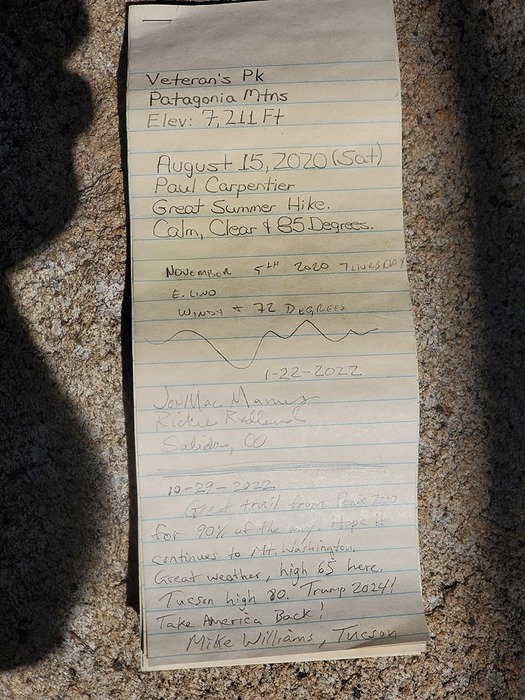 Veteran's Pk
Patagonia Mtns
Elev: 7,211 Ft
August 15, 2020 (Sat)
Paul Carpentier
Great Summer Hike.
Calm, Clear & 85 Degrees.
November 5th 2020 Thursday
E. Lino
Windy + 72 Degrees
1-22-2022
Jon/Mac
Rickie
Salida, CO
10-29-2022
Great trail from
for 90% of the way. Hope it
continues to Mt. Washington.
Great weather, high 65 here.
Tucson high 80. Trump 2024!
Take America Back!
Mike Williams, Tucson